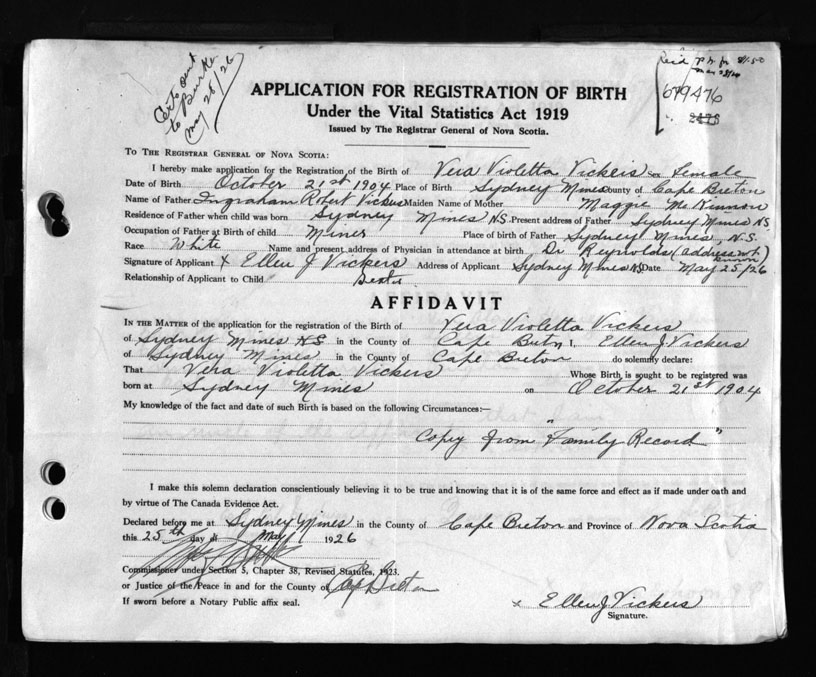 Certs sent
to Burke
May 28/26
APPLICATION FOR REGISTRATION OF BIRTH
Under the Vital Statistics Act 1919
Issued by The Registrar General of Nova Scotia.
679476
2478
To The Registrar General of Nova Scotia:
I hereby make application for the Registration of the Birth of Vera Violetta Vickers Sex Female
Date of Birth October 21st 1904 Place of Birth Sydney Mines County of Cape Breton
Name of Father Ingraham Robert Vickers Maiden Name of Mother Maggie McKinnon
Residence of Father when child was born Sydney Mines N.S. Present address of Father Sydney Mines NS
Occupation of Father at Birth of child Miner Place of birth of Father Sydney Mines, N.S.
Race White Name and present address of Physician in attendance at birth Dr Reynolds (address not known)
Signature of Applicant X Ellen J Vickers Address of Applicant Sydney Mines NS Date May 25/26
Relationship of Applicant to Child
AFFIDAVIT
In the Matter of the application for the registration of the Birth of Vera Violetta Vickers
of Sydney Mines N.S in the County of Cape Breton I, Ellen J. Vickers
of Sydney Mines in the County of Cape Breton do solemnly declare:
That Vera Violetta Vickers Whose Birth is sought to be registered was
born at Sydney Mines on October 21st 1904
My knowledge of the fact and date of such Birth is based on the following Circumstances:—
Copey from "Family Record"
I make this solemn declaration conscientiously believing it to be true and knowing that it is of the same force and effect as if made under oath and
by virtue of The Canada Evidence Act.
Declared before me at Sydney Mines in the County of Cape Breton and Province of Nova Scotia
this 25th day of May 1926
Commissioner under Section 5, Chapter 38, Revised Statutes, 1923.
or Justice of the Peace in and for the County of Cape Breton
If sworn before a Notary Public affix seal.
x Ellen J Vickers
Signature.